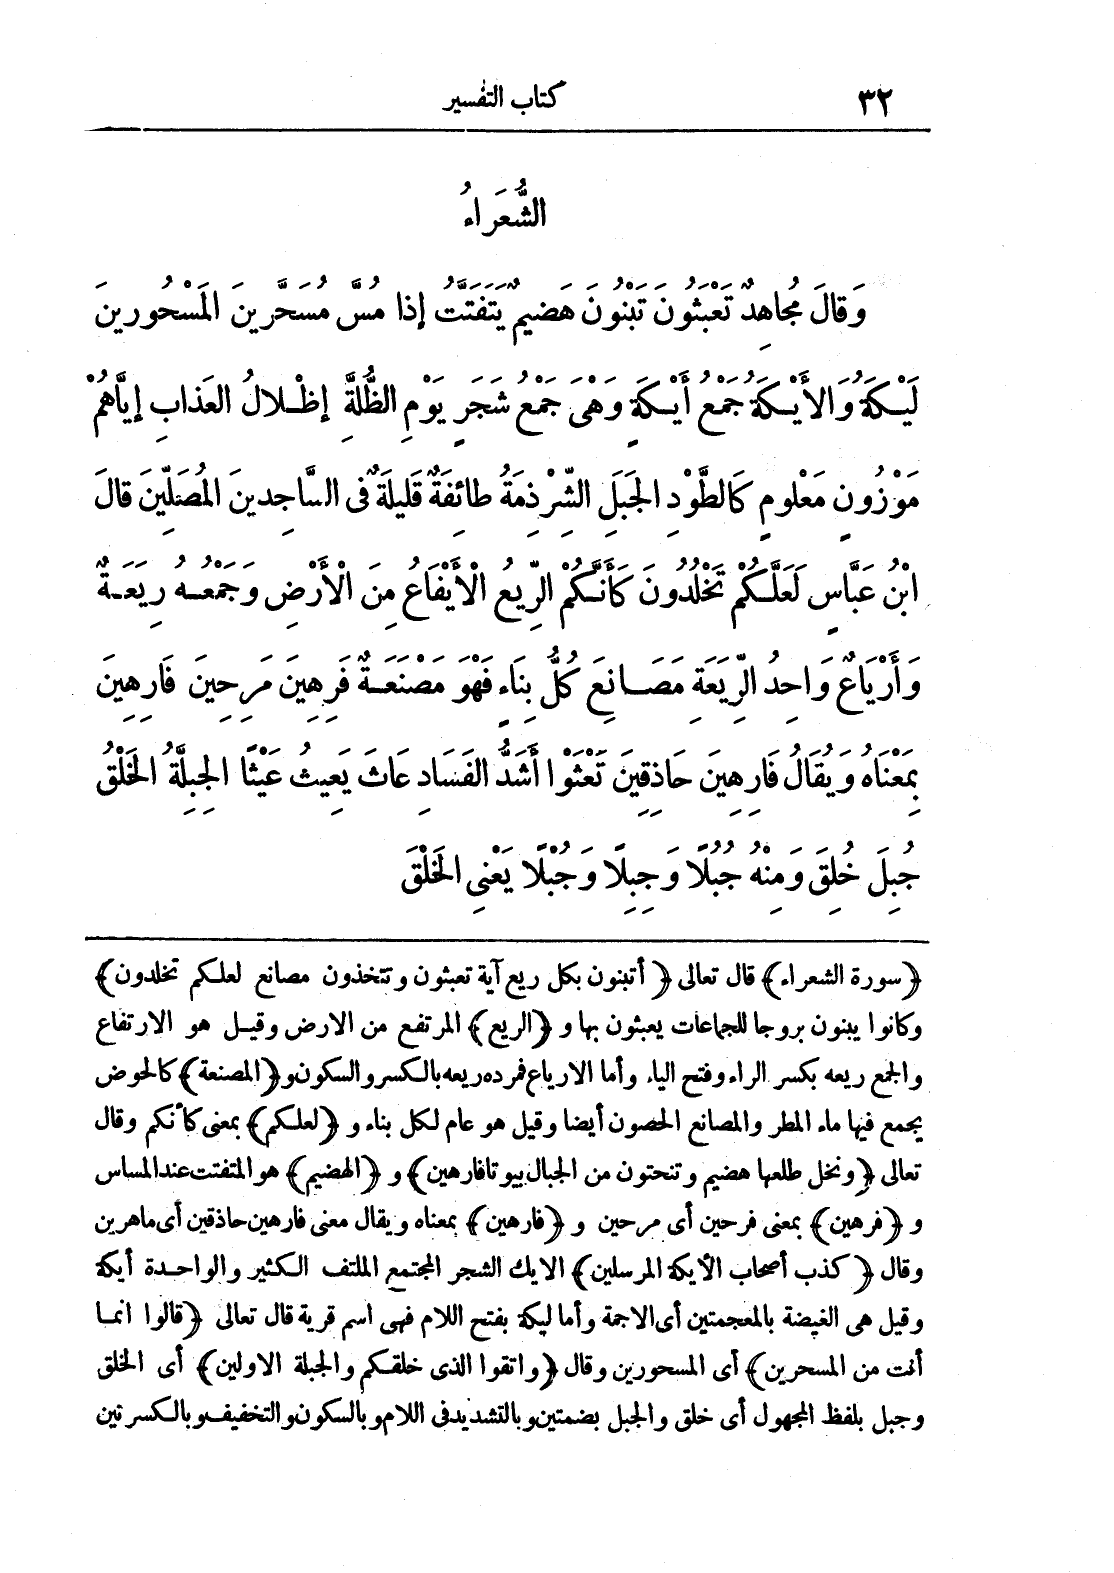 ٣٢
كتاب التفسير
الشُّعَرَاءُ
وَقَالَ مُجَاهِدٌ تَعْبَثُونَ تَبْنُونَ هَضِيمٌ يَتَفَتَّتُ إِذَا مُسَّ مُسَحَّرِينَ المَسْحُورِينَ
لَيْكَةُ وَالأَيْكَةُ جَمْعُ أَيْكَةٍ وَهْىَ جَمْعُ شَجَرٍ يَوْمِ الظُّلَّةِ إِظْلَالُ العَذَابِ إِيَّاهُمْ
مَوْزُونٍ مَعْلُومٍ كَالطَّوْدِ الجَبَلِ الشِّرْذِمَةُ طَائِفَةٌ قَلِيلَةٌ فِى السَّاجِدِينَ المُصَلِّينَ قَالَ
ابْنُ عَبَّاسٍ لَعَلَّكُمْ تَخْلُدُونَ كَأَنَّكُمْ الرِّيعُ الْأَيْفَاعُ مِنَ الْأَرْضِ وَجَمْعُهُ رِيَعَةٌ
وَأَرْيَاعٌ وَاحِدُ الرِّيَعَةِ مَصَانِعَ كُلُّ بِنَاءٍ فَهْوَ مَصْنَعَةٌ فَرِهِينَ مَرِحِينَ فَارِهِينَ
بِمَعْنَاهُ وَيُقَالُ فَارِهِينَ حَاذِقِينَ تَعْثَوْا أَشَدُّ الفَسَادِ عَاثَ يَعِيثُ عَيْثًا الجِبِلَّةُ الخَلْقُ
جُبِلَ خُلِقَ وَمِنْهُ جُبُلًا وَجِبِلًا وَجُبْلًا يَعْنِى الخَلْقَ
﴿سورة الشعراء﴾ قال تعالى ﴿أتبنون بكل ريع آية تعبثون وتتخذون مصانع لعلكم تخلدون﴾
وكانوا يبنون بروجا للجماعات يعبثون بها و ﴿الريع﴾ المرتفع من الارض وقيل هو الارتفاع
والجمع ريعه بكسر الراء وفتح الياء وأما الارياع فمرده ريعه بالكسر والسكون و﴿المصنعة﴾ كالحوض
يجمع فيها ماء المطر والمصانع الحصون أيضا وقيل هو عام لكل بناء و ﴿لعلكم﴾ بمعنى كأنكم وقال
تعالى ﴿ونخل طلعها هضيم وتنحتون من الجبال بيوتا فارهين﴾ و ﴿الهضيم﴾ هو المتفتت عند المساس
و ﴿فرهين﴾ بمعنى فرحين أى مرحين و ﴿فارهين﴾ بمعناه ويقال معنى فارهين حاذقين أى ماهرين
وقال ﴿كذب أصحاب الأيكة المرسلين﴾ الايك الشجر المجتمع الملتف الكثير والواحدة أيكة
وقيل هى الغيضة بالمعجمتين أى الاجمة وأما ليكة بفتح اللام فهى اسم قرية قال تعالى ﴿قالوا انما
أنت من المسحرين﴾ أى المسحورين وقال ﴿واتقوا الذى خلقكم والجبلة الاولين﴾ أى الخلق
وجبل بلفظ المجهول أى خلق والجبل بضمتين وبالتشديد فى اللام وبالسكون والتخفيف وبالكسرتين